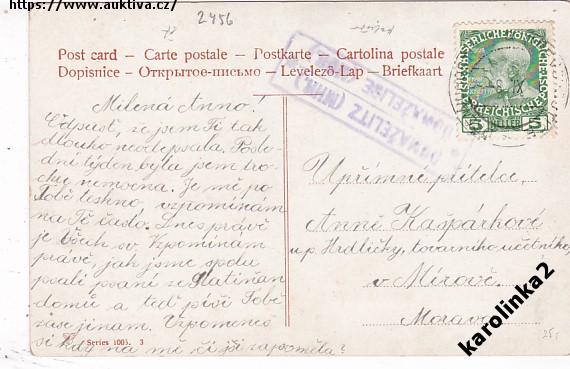 https://www.auktiva.cz/
2456
Post card – Carte postale – Postkarte – Cartolina postale
Dopisnice – Открытое-письмо – Levelező-Lap – Briefkaart
5 HELLER 5
Milená Anno!
Odpusť, že jsem Ti tak
dlouho neodepsala, Posle-
dní týden byla jsem tro-
chu nemocna. Je mě po
Tobě teskno, vzpomínám
na Tě často. Dnes právě
je Všech sv. Vzpomínám
právě, jak jsme spolu
psali psaní ze Slatiňan
domů a teď píši Tobě
zase jinam. Vzpomeneš
si kdy na mě, či jsi zapoměla?
Upřímné přítelce,
Anně Kašpárkové
u p. Hrdličky, továrního účetního,
v Mírově.
Morava
Series 1003. 3
25-
karolinka2